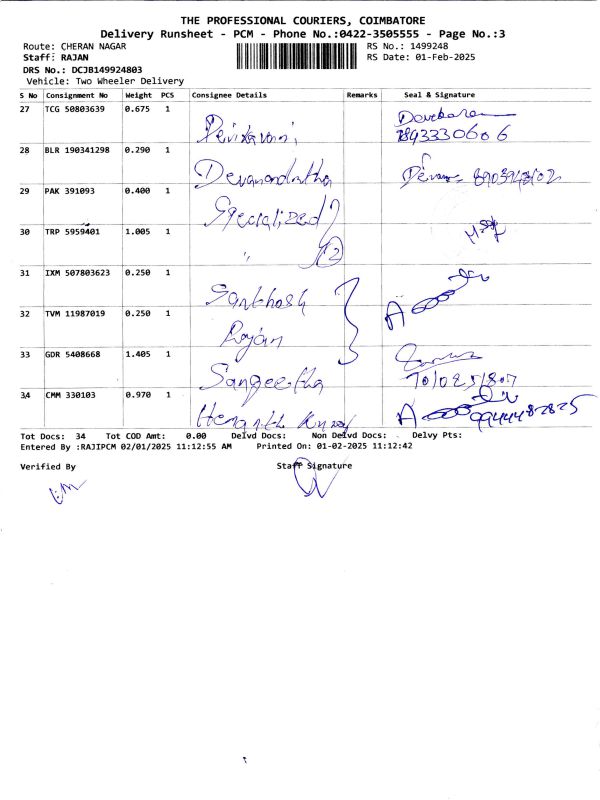 THE PROFESSIONAL COURIERS, COIMBATORE
Delivery Runsheet - PCM - Phone No.:0422-3505555 - Page No.:3
Route: CHERAN NAGAR RS No.: 1499248
Staff: RAJAN RS Date: 01-Feb-2025
DRS No.: DCJB149924803
Vehicle: Two Wheeler Delivery
S No Consignment No Weight PCS Consignee Details Remarks Seal & Signature
27 TCG 50803639 0.675 1
28 BLR 190341298 0.290 1
29 PAK 391093 0.400 1 Specialized
30 TRP 5959401 1.005 1 " 2
31 IXM 507803623 0.250 1 Santhosh
32 TVM 11987019 0.250 1 Rajan
33 GDR 5408668 1.405 1 Sangeetha
34 CMM 330103 0.970 1
Tot Docs: 34 Tot COD Amt: 0.00 Delvd Docs: Non Delvd Docs: Delvy Pts:
Entered By :RAJIPCM 02/01/2025 11:12:55 AM Printed On: 01-02-2025 11:12:42
Verified By Staff Signature